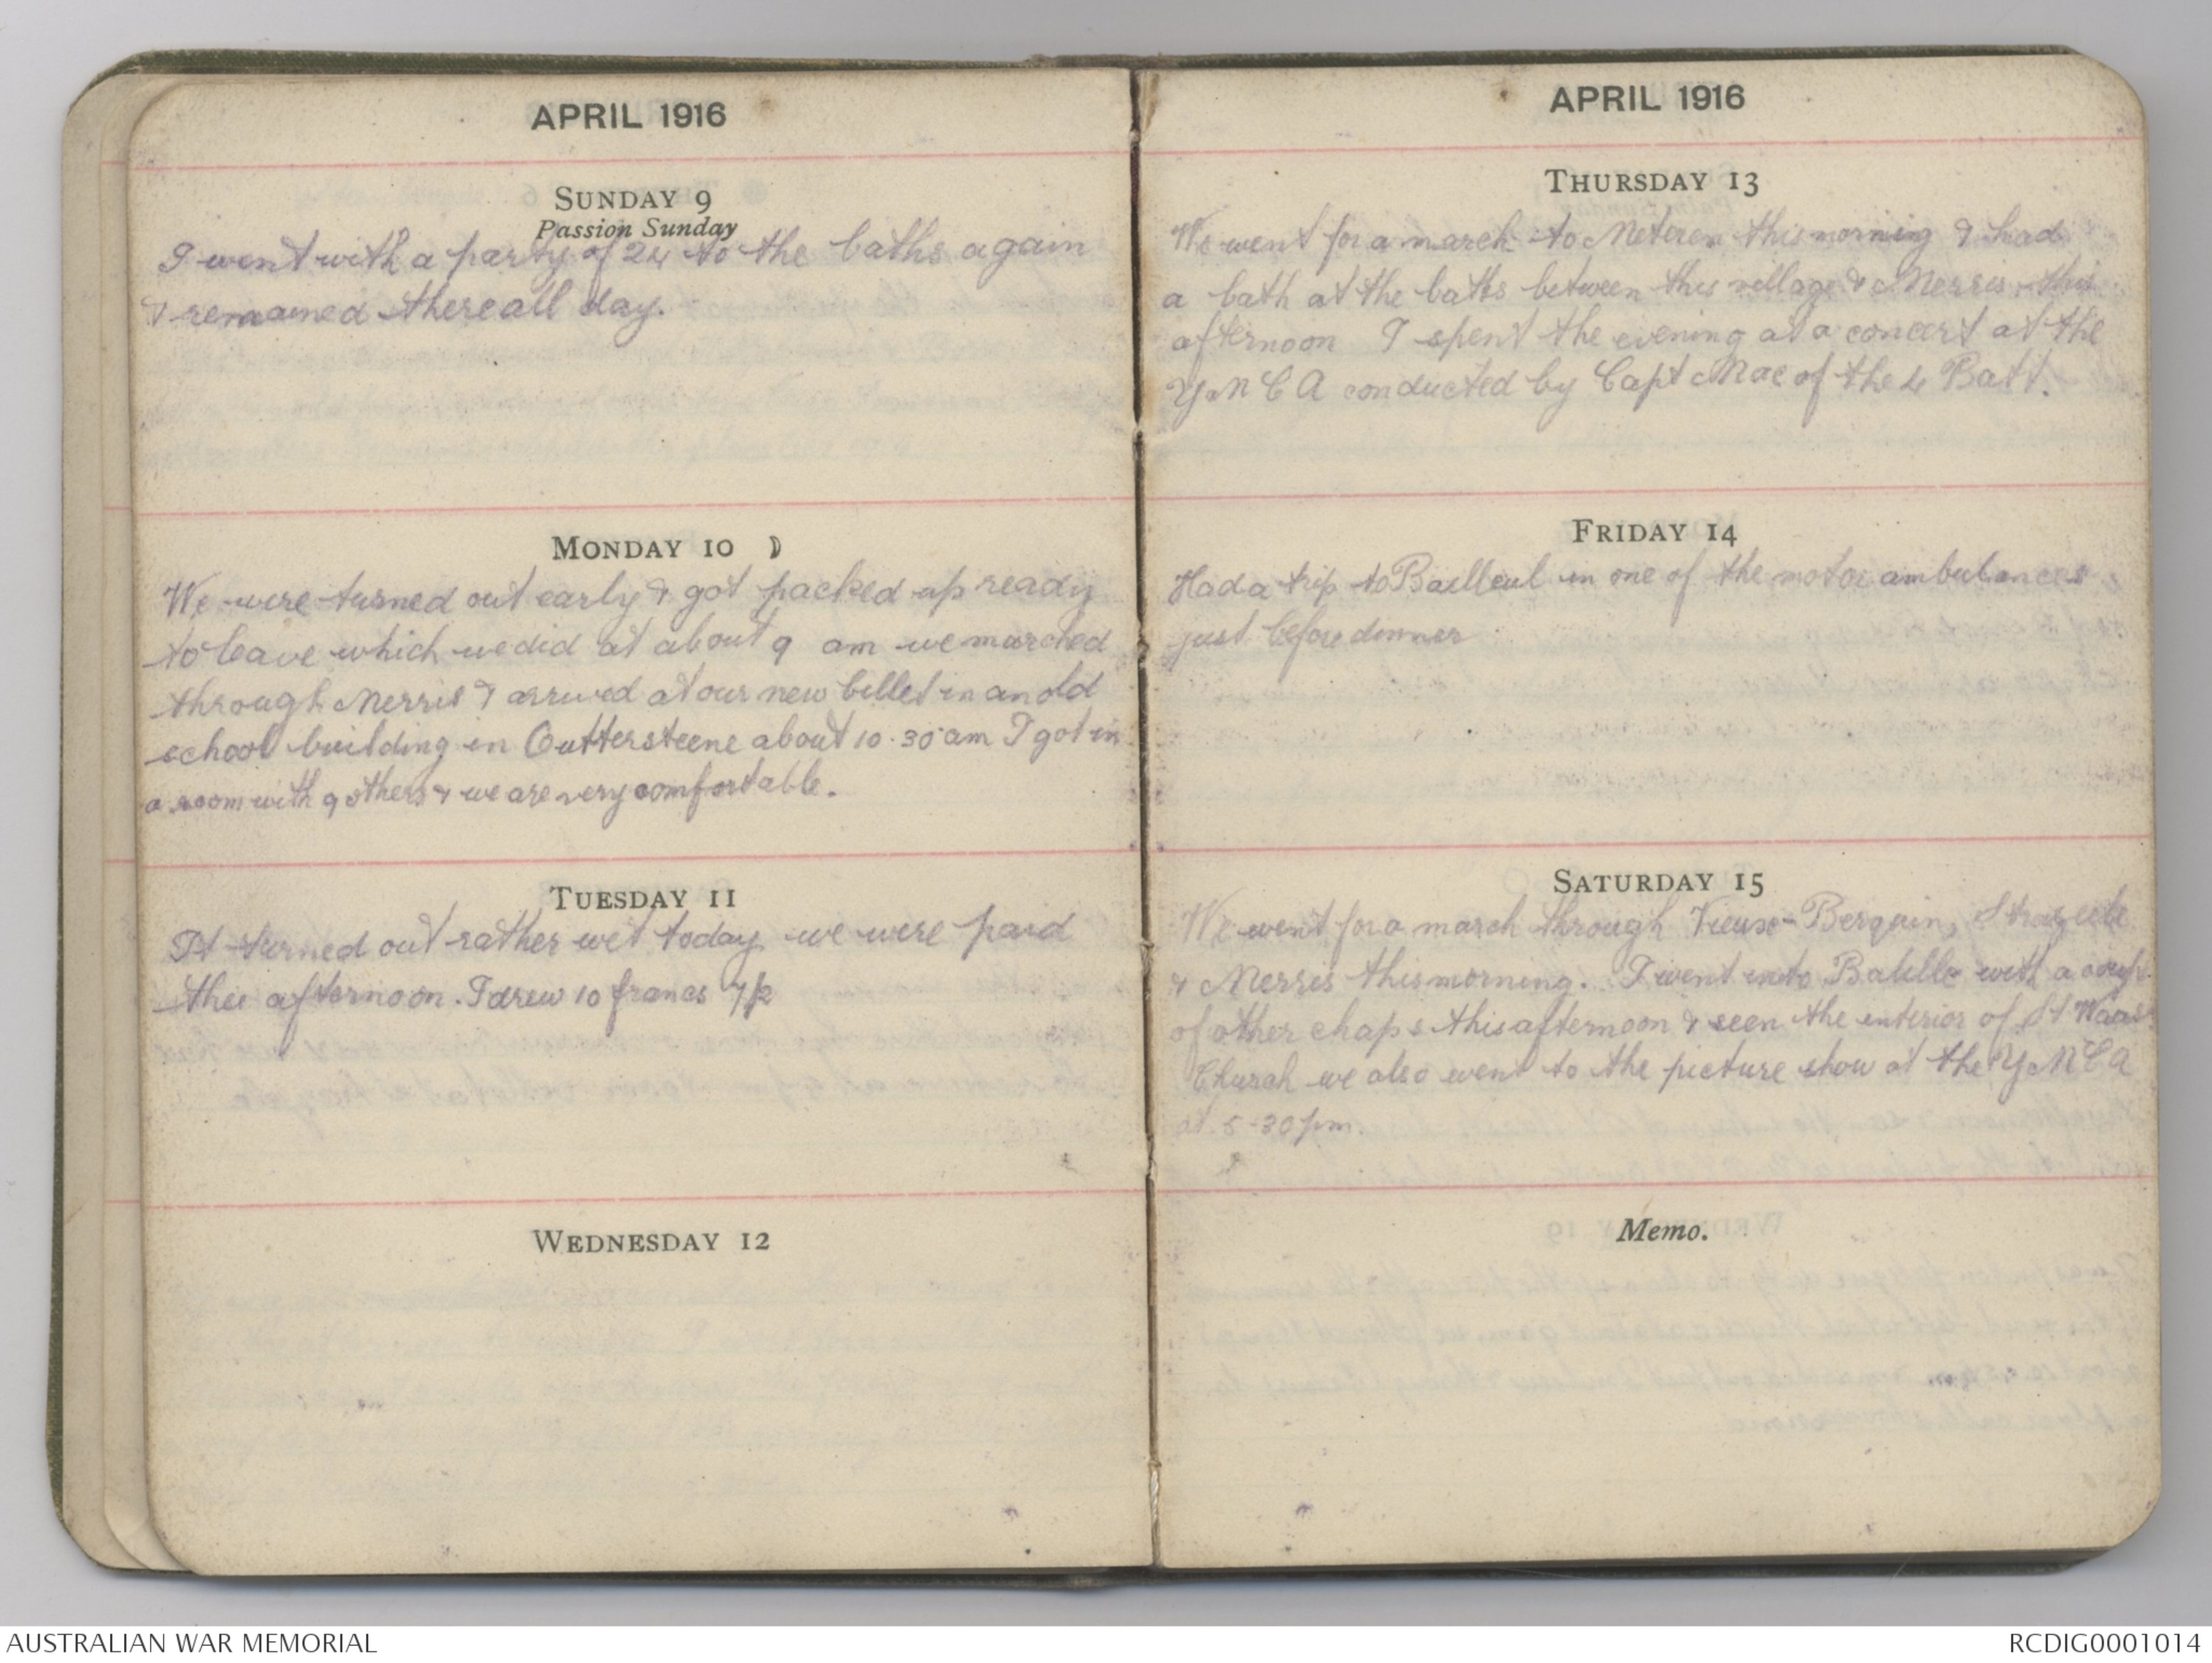 APRIL 1916
SUNDAY 9
Passion Sunday
I went with a party of 24 to the baths again
& remained there all day.
MONDAY 10
We were turned out early & got packed up ready
to leave which we did at about 9 am we marched
through Merris & arrived at our new billet in an old
school building in Outtersteene about 10.30 am I got in
a room with 9 others & we are very comfortable.
TUESDAY 11
It turned out rather wet today we were paid
this afternoon. I drew 10 francs 7/2
WEDNESDAY 12
APRIL 1916
THURSDAY 13
We went for a march to Meteren this morning & had
a bath at the baths between this village & Merris this
afternoon I spent the evening at a concert at the
Y M C A conducted by Capt Mac of the 4 Batt.
FRIDAY 14
Had a trip to Bailleul in one of the motor ambulances
just before dinner
SATURDAY 15
We went for a march through Vieux-Berquin, Strazeele
& Merris this morning. I went into with a
of other chaps this afternoon & seen the interior of St
Church we also went to the picture show at the Y M C A
at 5-30 pm.
Memo.
AUSTRALIAN WAR MEMORIAL
RCDIG0001014